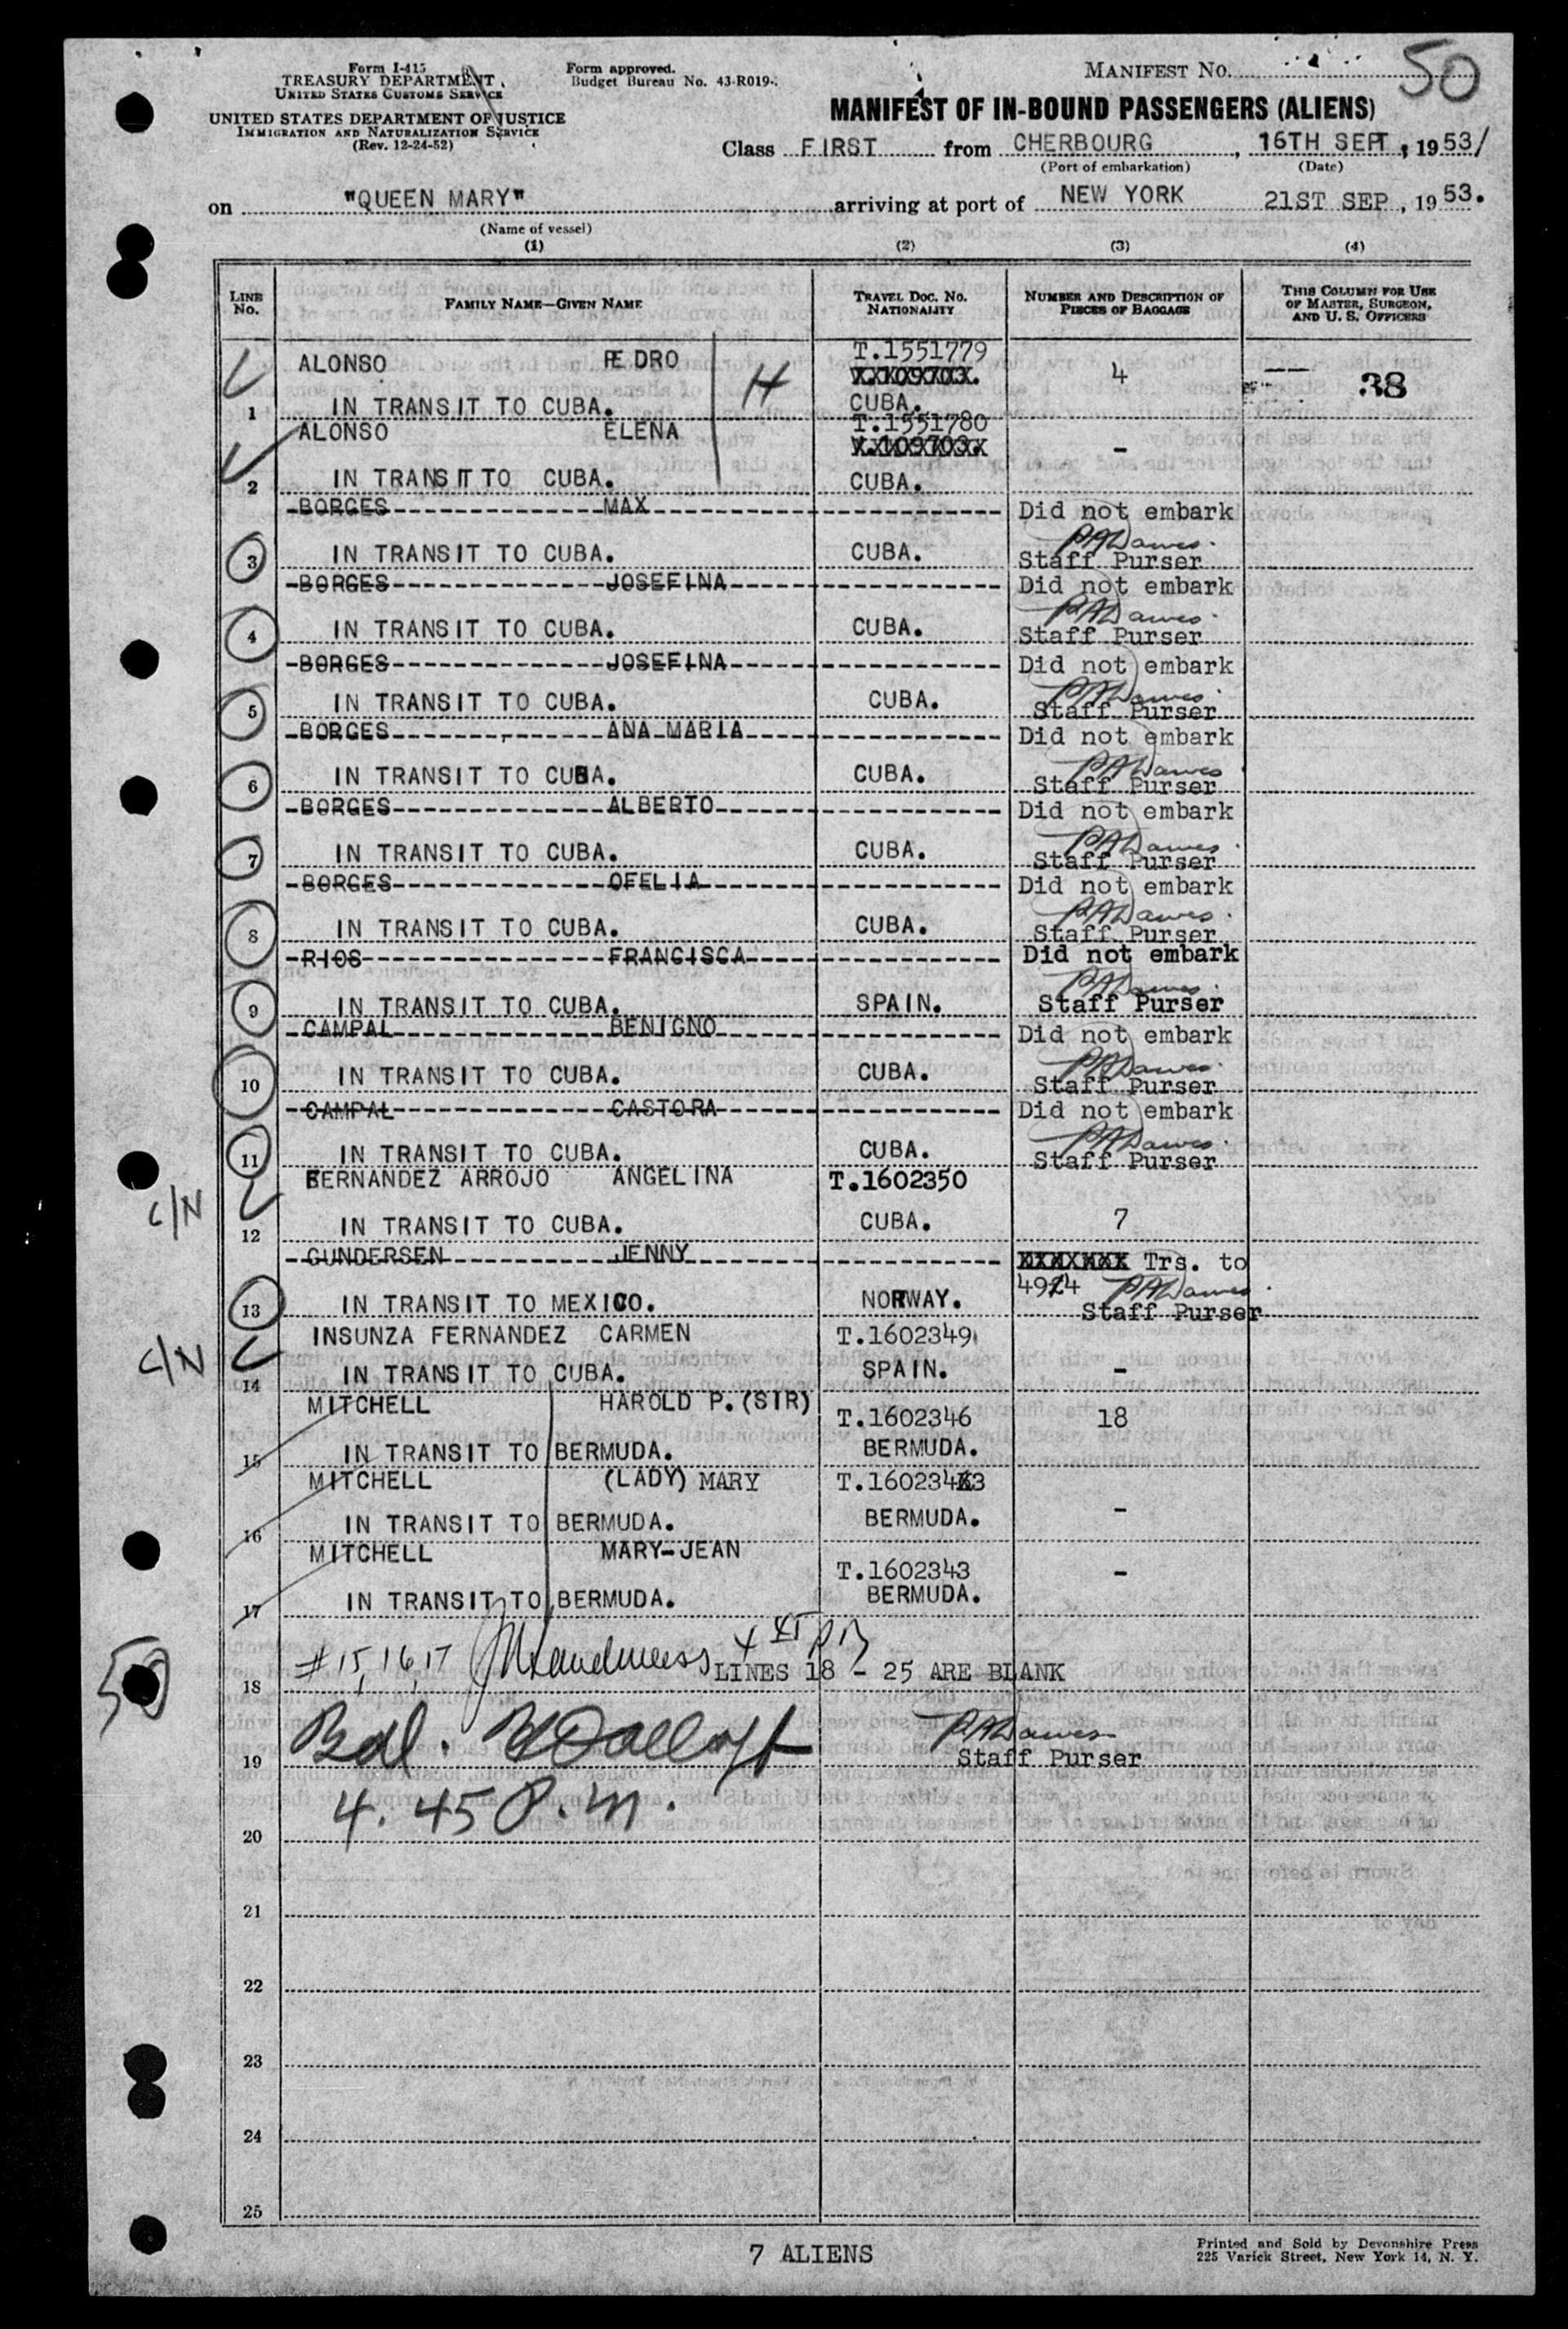 Form I-415
TREASURY DEPARTMENT
UNITED STATES CUSTOMS SERVICE
UNITED STATES DEPARTMENT OF JUSTICE
IMMIGRATION AND NATURALIZATION SERVICE
(Rev. 12-24-52)
Form approved.
Budget Bureau No. 43-R019-
MANIFEST NO.
50
MANIFEST OF IN-BOUND PASSENGERS (ALIENS)
Class FIRST from CHERBOURG, 16TH SEPT, 1953/
(Port of embarkation) (Date)
on "QUEEN MARY" arriving at port of NEW YORK 21ST SEP, 1953.
(Name of vessel)
(1) (2) (3) (4)
LINE No. FAMILY NAME—GIVEN NAME TRAVEL DOC. NO. NATIONALITY NUMBER AND DESCRIPTION OF PIECES OF BAGGAGE THIS COLUMN FOR USE OF MASTER, SURGEON, AND U. S. OFFICERS
ALONSO PEDRO H T.1551779 4 38
1 IN TRANSIT TO CUBA. CUBA.
ALONSO ELENA T.1551780 -
2 IN TRANSIT TO CUBA. CUBA.
BORGES MAX Did not embark
PADawes.
3 IN TRANSIT TO CUBA. CUBA. Staff Purser
BORGES JOSEFINA Did not embark
PADawes.
4 IN TRANSIT TO CUBA. CUBA. Staff Purser
BORGES JOSEFINA Did not embark
PADawes.
5 IN TRANSIT TO CUBA. CUBA. Staff Purser
BORGES ANA MARIA Did not embark
PADawes
6 IN TRANSIT TO CUBA. CUBA. Staff Purser
BORGES ALBERTO Did not embark
PADawes.
7 IN TRANSIT TO CUBA. CUBA. Staff Purser
BORGES OFELIA Did not embark
PADawes.
8 IN TRANSIT TO CUBA. CUBA. Staff Purser
RIOS FRANCISCA Did not embark
PADawes.
9 IN TRANSIT TO CUBA. SPAIN. Staff Purser
CAMPAL BENIGNO Did not embark
PADawes.
10 IN TRANSIT TO CUBA. CUBA. Staff Purser
CAMPAL CASTORA Did not embark
PADawes.
11 IN TRANSIT TO CUBA. CUBA. Staff Purser
FERNANDEZ ARROJO ANGELINA T.1602350
C/N
12 IN TRANSIT TO CUBA. CUBA. 7
GUNDERSEN JENNY Trs. to
4914 PADawes.
13 IN TRANSIT TO MEXICO. NORWAY. Staff Purser
INSUNZA FERNANDEZ CARMEN T.1602349
C/N
14 IN TRANSIT TO CUBA. SPAIN. -
MITCHELL HAROLD P. (SIR) T.1602346 18
15 IN TRANSIT TO BERMUDA. BERMUDA.
MITCHELL (LADY) MARY T.1602343
16 IN TRANSIT TO BERMUDA. BERMUDA. -
MITCHELL MARY-JEAN T.1602343 -
17 IN TRANSIT TO BERMUDA. BERMUDA.
# 15, 16, 17
18 LINES 18 - 25 ARE BLANK
50
PADawes
19 Staff Purser
4.45 P.m.
20
21
22
23
24
25
7 ALIENS
Printed and Sold by Devonshire Press
225 Varick Street, New York 14, N. Y.